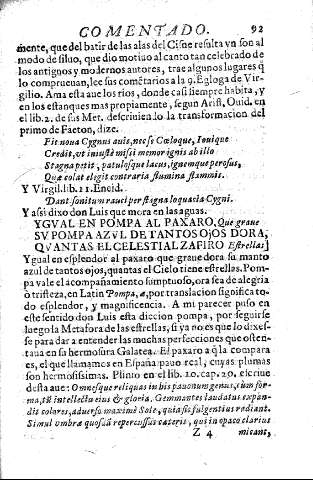 COMENTADO. 92
mente, que del batir de las alas del Cisne resulta vn son al
modo de siluo, que dio motiuo al canto tan celebrado de
los antiguos y modernos autores, trae algunos lugares q̃
lo comprueuan, lee sus comẽtarios a la 9. Egloga de Vir-
gilio. Ama esta aue los rios, donde casi siempre habita, y
en los estanques mas propiamente, segun Arist. Ouid. en
el lib. 2. de sus Met. descriuiendo la transformacion del
primo de Faeton, dize.
Fit noua Cygnus auis, nec se Cœloque, Iouique
Credit, vt iniustè missi memor ignis ab illo
Stagna petit, patulosque lacus, ignemque perosus,
Quæ colat elegit contraria flumina flammis.
Y Virgil. lib. 11. Eneid.
Dant sonitum rauci per stagna loquacia Cygni.
Y assi dixo don Luis que mora en las aguas.
YGVAL EN POMPA AL PAXARO, Que graue
SV POMPA AZVL DE TANTOS OJOS DORA,
QVANTAS EL CELESTIAL ZAFIRO Estrellas]
Ygual en esplendor al paxaro que graue dora su manto
azul de tantos ojos, quantas el Cielo tiene estrellas. Pom-
pa vale el acompañamiento sumptuoso, ora sea de alegria
ò tristeza, en Latin Pompa, æ, por translacion significa to-
do esplendor, y magnificencia. A mi parecer puso en
este sentido don Luis esta diccion pompa, por seguirse
luego la Metafora de las estrellas, si ya no es que lo dixes-
se para dar a entender las muchas perfecciones que osten-
taua en su hermosura Galatea. El paxaro a q̃ la compara
es, el que llamamos en España pauo real, cuyas plumas
son hermosissimas. Plinio en el lib. 10. cap. 20. escriue
desta aue: Omnesque reliquas in his pauonum genus, cũm for-
ma, tũ intellectu eius & gloria. Gemmantes laudatus expan-
dit colores, aduerso maximè Sole, quia sic fulgentius radiant.
Simul vmbræ quosdã repercussus cæteris, qui in opaco clarius
Z 4 micant,